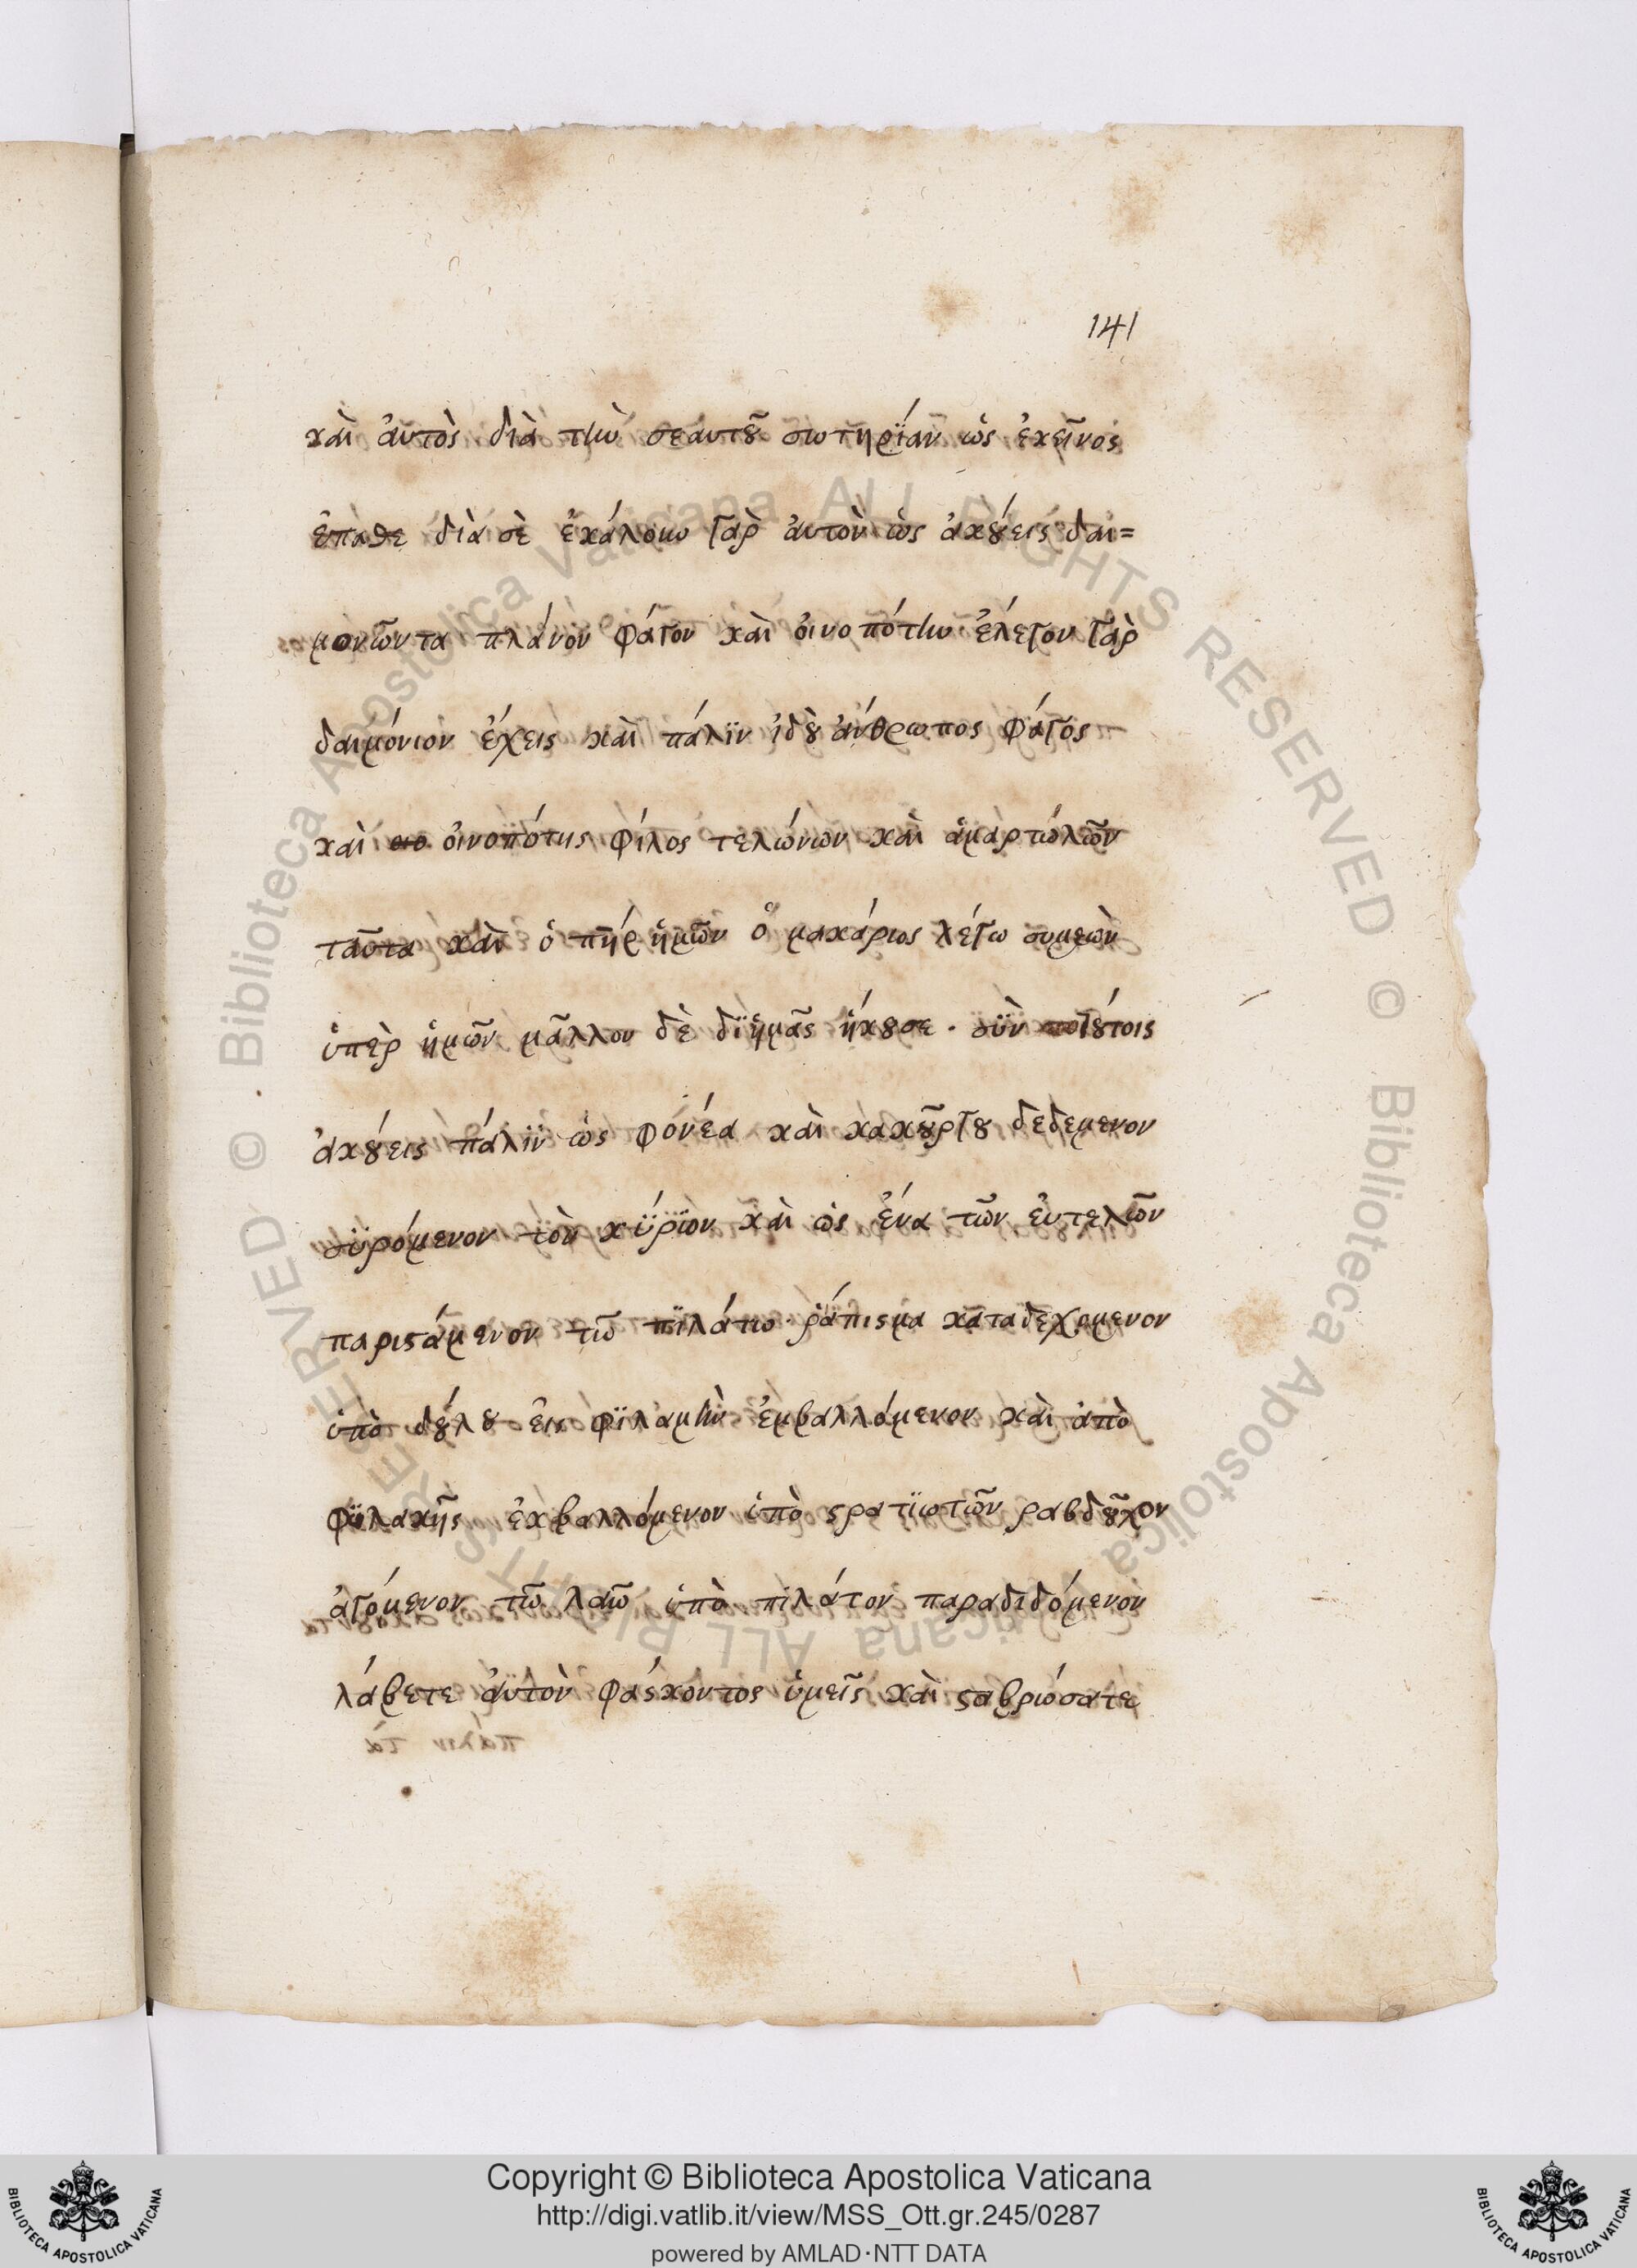 141
καὶ ἀυτὸς διὰ τὴν σεαυτοῦ σωτηρΐαν ὡς ἐκεῖνος
ἔπαθε διὰ σὲ ἐκάλουν γαρ ἀυτὸν ὡς ἀκούεις δαι=
μονῶντα πλάνον φάγον καὶ ὀινοπότην· ἔλεγον γαρ
δαιμόνιον ἔχεις καὶ πάλϊν ἰδοὺ ἄνθρωπος φάγος
καὶ οινο ὀινοπότης φίλος τελώνων καὶ ἁμαρτωλῶν
ταῦτα καὶ ὁ πηρ ἡμῶν ὁ μακάριος λέγω συμεὼν
ὑπὲρ ἡμῶν μᾶλλον δὲ δϊ ἡμᾶς ἤκουσε· σῢν τούτοις
ἀκούεις πάλϊν ὡς φονέα καὶ κακοῦργου δεδεμενον
σϋρόμενον τὸν κΰρϊον καὶ ὡς ἕνα τῶν ἐυτελῶν
παριϛάμενον τῶ πϊλάτω· ῥάπισμα καταδεχομενον
ὑπὸ δούλου ἐις φϋλακὴν ἐμβαλλόμενον καὶ ἀπὸ
φϋλακῆς ἐκβαλλόμενον ὑπὸ ϛρατϊωτῶν ραβδοῦχον
ἀγόμενον τῶ λαῶ ὑπὸ πιλάτον παραδιδόμενον
λάβετε ἀυτὸν φάσκοντος ὑμεῖς καὶ ϛαβρώσατε
Copyright © Biblioteca Apostolica Vaticana
http://digi.vatlib.it/view/MSS_Ott.gr.245/0287
powered by AMLAD·NTT DATA
BIBLIOTECA APOSTOLICA VATICANA
BIBLIOTECA APOSTOLICA VATICANA
© Biblioteca Apostolica Vaticana ALL RIGHTS RESERVED © Biblioteca Apostolica Vaticana ALL RIGHTS RESERVED